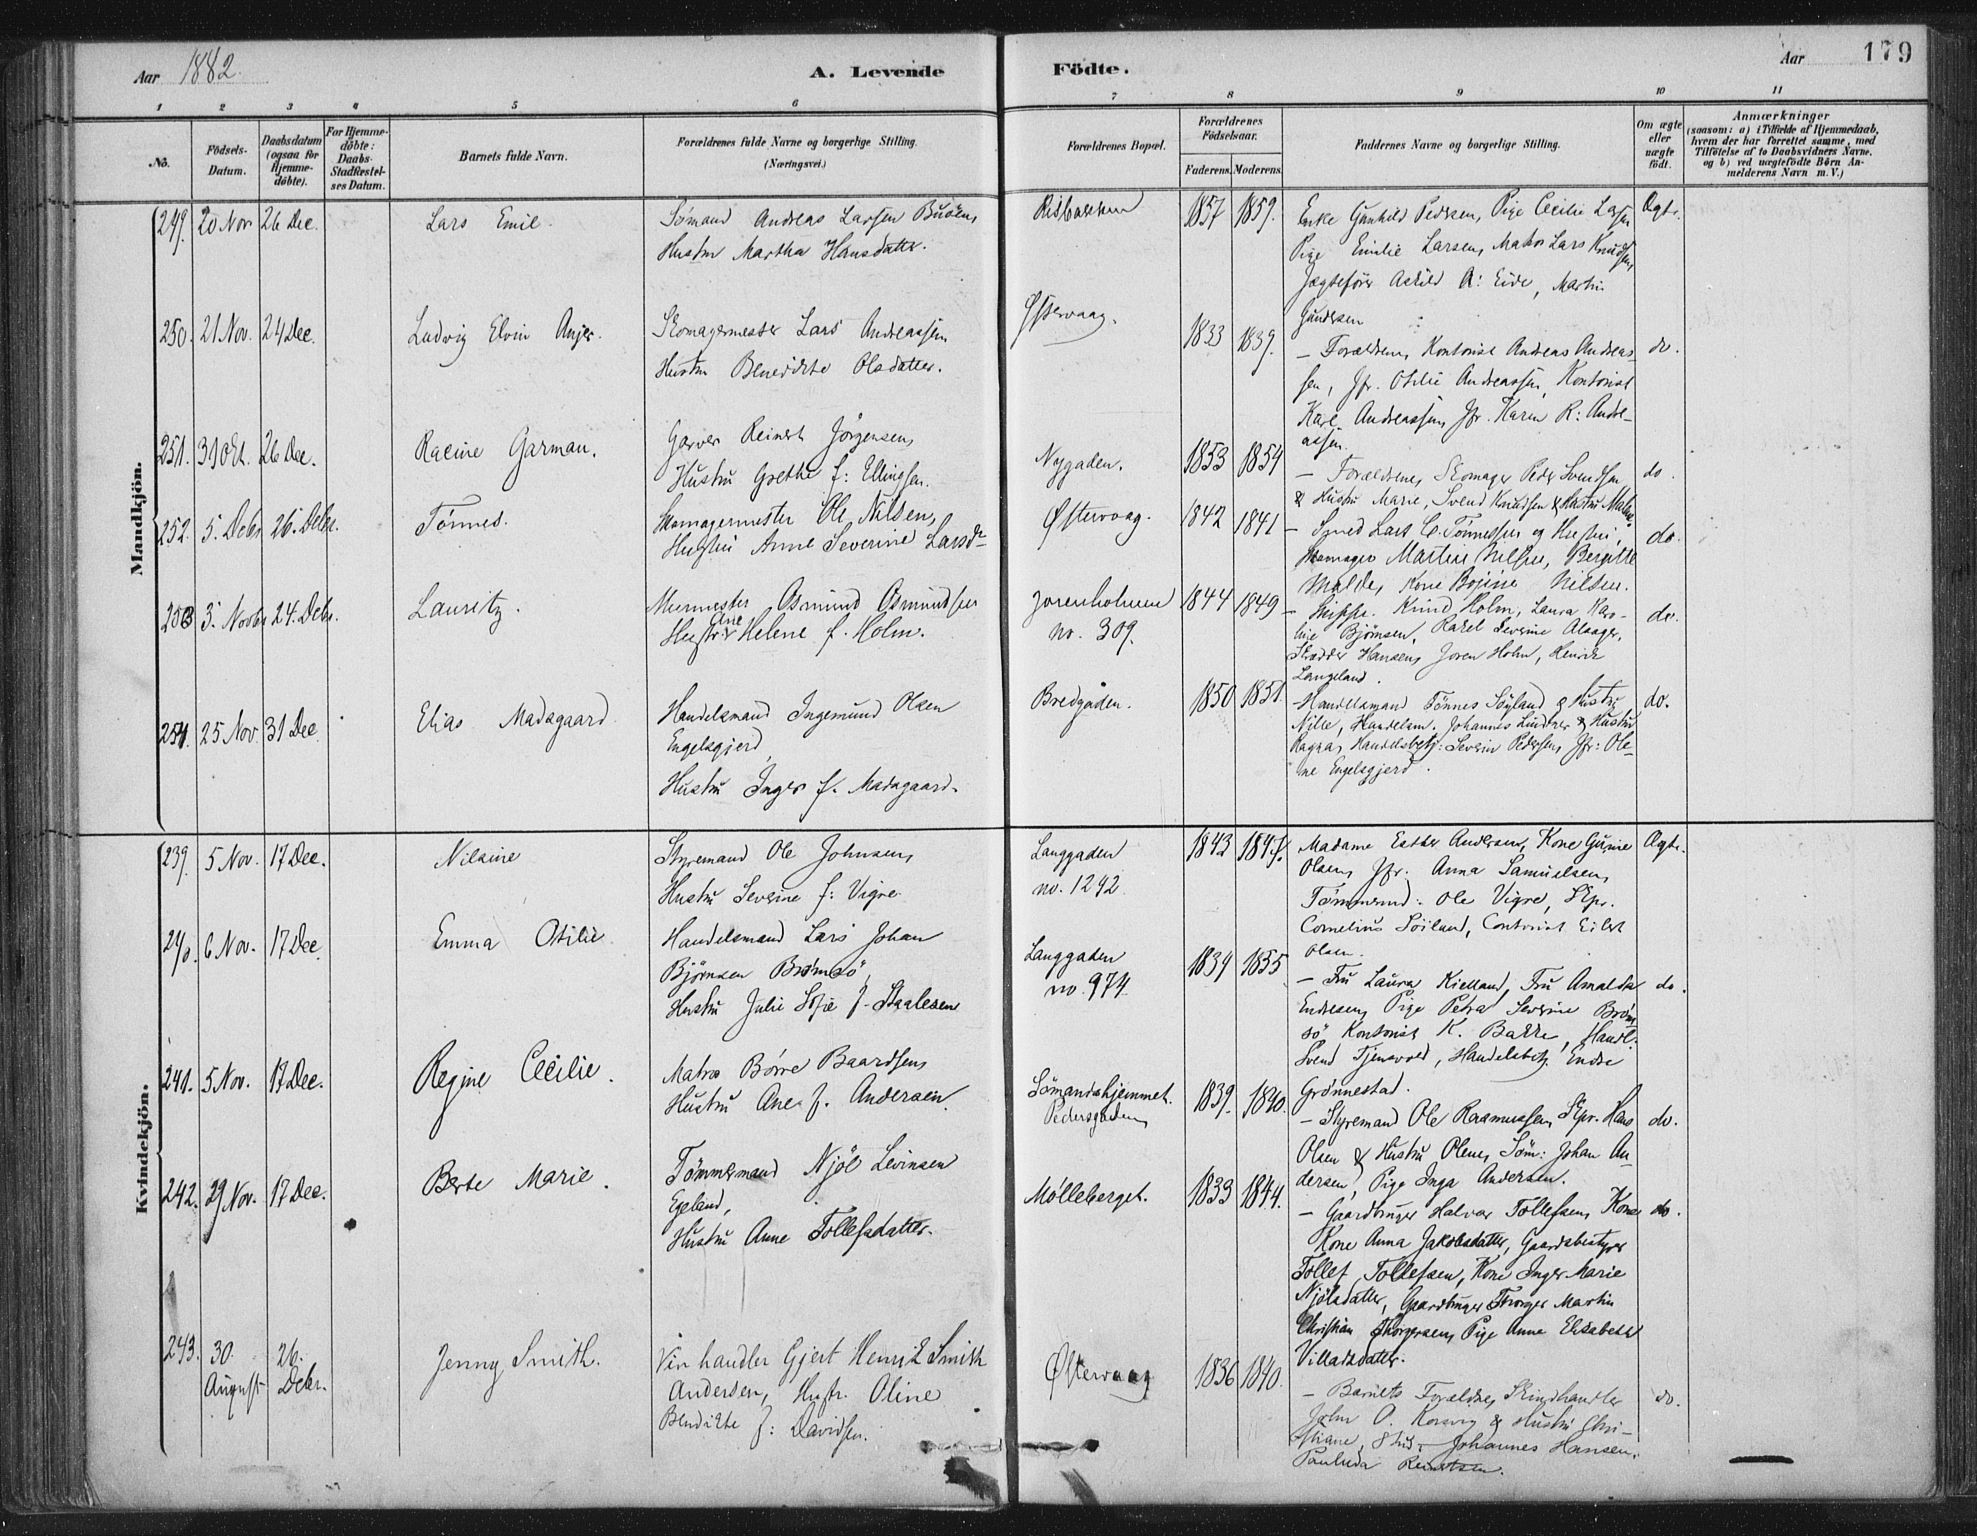 Aar 1882.
A. Levende Födte.
Aar
179
1 2 3 4 5 6 7 8 9 10 11
No.
Födsels-Datum.
Daabsdatum (ogsaa for Hjemme-döbte).
For Hjemme-döbte: Daabs-Stadfæstel-ses Datum.
Barnets fulde Navn.
Forældrenes fulde Navne og borgerlige Stilling. (Næringsvei.)
Forældrenes Bopæl.
Forældrenes Födselsaar.
Faderens. Moderens.
Faddernes Navne og borgerlige Stilling.
Om ægte eller uægte födt.
Anmærkninger
(saasom: a) i Tilfælde af Hjemmedaab, hvem der har forrettet samme, med Tilföielse af to Daabsvidners Navne, og b) ved uægtefödte Börn An-melderens Navn m. V.)
Mandkjön.
249. 20 Nov. 26 Dec. Lars Emil.
Sømand Andreas Larsen
Hustru Martha Hansdatter.
1857 1859.
Enke Gunhild Pedersen, Pige Cecilie Larsen
Pige Emilie Larsen, Matros Lars Knudsen
Jægtefører Askild A: Eide, Martin
Gundersen
Ægte.
250. 21 Nov. 24 Dec. Ludvig Elvin
Skomagermester Lars Andreassen
Hustru Benedikte Olsdatter.
Østervaag.
1833 1839.
– Forældrene, Kontorist Andreas Andreas-
sen, Jfr. Otilie Andreassen, Kontorist
Karl Andreassen, Jfr. Karen R: Andre-
assen.
do.
251. 31 Oct. 26 Dec. Racine Garman.
Garver Reinert Jørgensen,
Hustru Grethe f: Ellingsen.
Nygaden.
1853 1854
– Forældrene, Skomager Peder Svendsen
& Hustru Marie, Svend Knudsen & Hustru
do
252. 5. Decbr. 26. Decbr. Tönnes.
Skomagermester Ole Nilsen,
Hustru Anne Severine Larsdr.
Østervaag.
1842 1841
– Smed Lars C. Tønnessen og Hustru,
Skomager Martin Nilsen, Bergitte
Malde, Kone Nilsen.
do.
253 3. Novbr 24. Debr. Lauritz.
Murmester Osmund Osmundsen
Hustru Helene f. Holm.
Jorenholmen
no. 309.
1844 1849
– Skipper Knud Holm, Laura Karo-
line Bjørnsen, Rakel Severine Alsager,
Skrædder Hansen, Joren Holm, Henrik
Langeland.
do.
254. 25 Nov. 31 Dec. Elias Madsgaard
Handelsmand Ingemund Olsen
Engelsgjerd,
Hustru Inger f. Madsgaard.
Bredgaden.
1850 1851.
– Handelsmand Tønnes Søyland & Hustru
Nille, Handelsm. Johannes Lindner & Hustru
Ragna, Handelsbetj: Severin Pedersen, Jfr: Ole-
ne Engelsgjerd.
do.
Kvindekjön.
239. 5 Nov. 17 Dec. Nilsine
Styrmand Ole Johnsen,
Hustru Severine f: Vigre
Langgaden
no. 1242.
1843
Madame Esther Andersen, Kone Gurine
Olsen, Jfr. Anna Samuelsen,
Tømmermd: Ole Vigre, Skpr.
Cornelius Soiland, Contorist Eilert
Olsen.
Ægte.
240. 6 Nov. 17 Dec. Emma Otilie
Handelsmand Lars Johan
Bjørnsen Brømsø,
Hustru Julie Sofie f. Staalesen
Langgaden
no. 974.
1839 1855
– Fru Laura Kielland, Fru Amalda
Endresen, Pige Petra Severine Brøm-
sø, Kontorist K. Bakke, Handl:
Svend Tjensvold, Handelsbetj. Endre
Grønnestad.
do.
241. 5 Nov. 17 Dec. Regine Cecilie.
Matros Børre Baardsen
Hustru Ane f. Andersen.
Sömandshjemmet.
Pedersgaden
1839. 1840.
– Styrmand Ole Rasmussen, Skpr. Hans
Olsen & Hustru Olene, Søm: Johan An-
dersen, Pige Inga Andersen.
do.
242. 29 Nov. 17 Dec. Berte Marie.
Tömmermand Njöl Levinsen
Egeland,
Hustru Anne Tollefsdatter.
Mølleberget.
1833 1844.
– Gaardbruger Halvor Tollefsen, Kone
Kone Anna Jakobsdatter, Gaardsbestyrer
Tollef Tollefsen, Kone Inger Marie
Njölsdatter, Gaardbruger Thorger Martin
Christian Thorgersen, Pige Anne Elisabeth
Villadsdatter.
do.
243. 30. August 26. Debr. Jenny Smith.
Vinhandler Gjert Henrik Smith
Andersen, Hustr. Oline
Bendikte f: Davidsen.
Østervaag
1836 1840.
– Barnets Forældre, Skindhandler
John O. & Hustru Chri-
stiane, Stud. Johannes Hansen,
Paulida Reinertsen.
do.